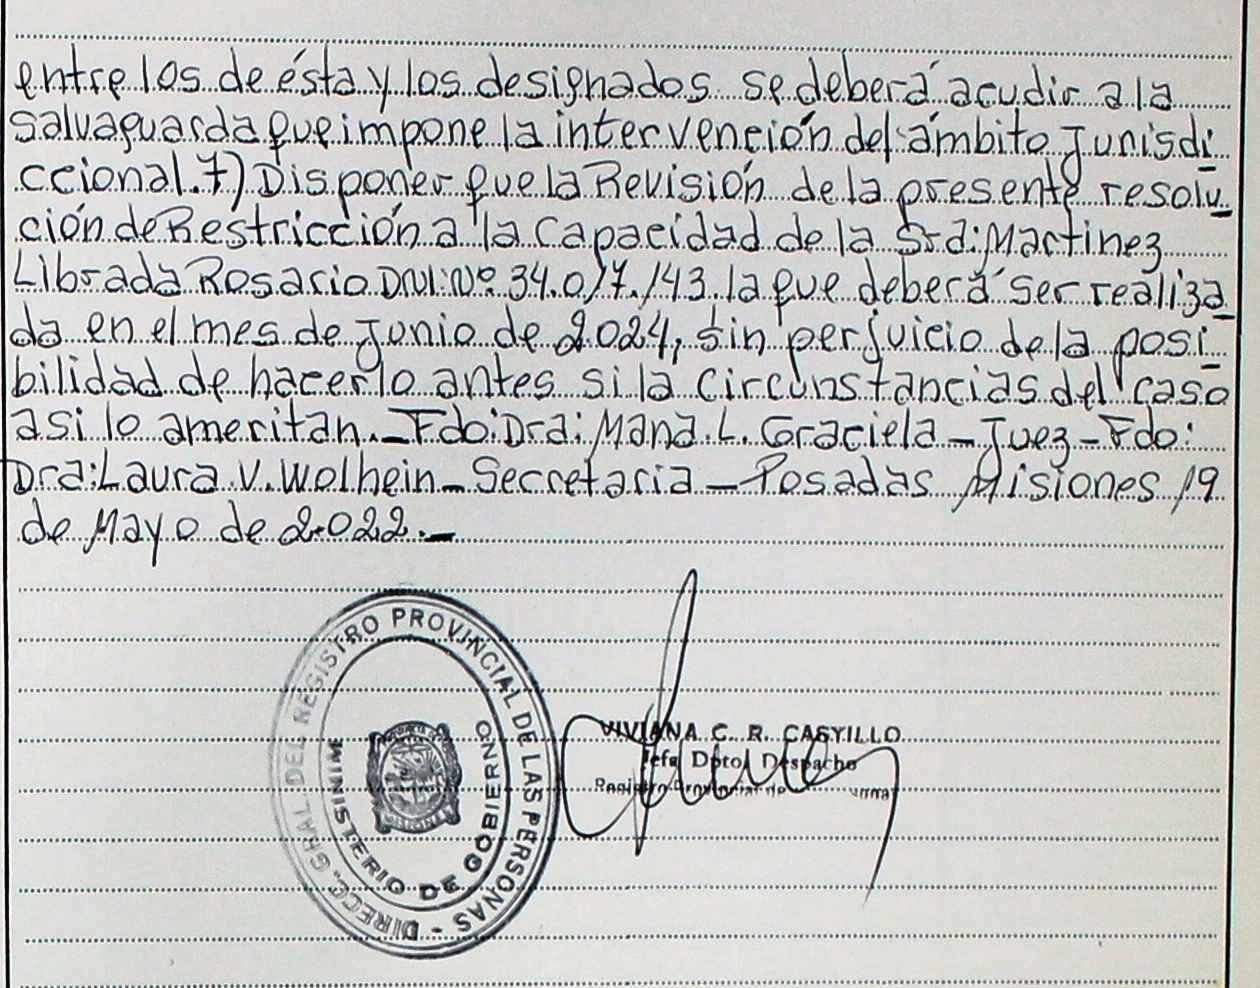 entre los de ésta y los designados se deberá acudir a la
salvaguarda que impone la intervención del ámbito Jurisdi
ccional. 7) Disponer que la Revisión de la presente resolu
ción de Restricción a la Capacidad de la Sra: Martinez
Librada Rosario DNI: Nº 34.017.143, la que deberá ser realiza
da en el mes de Junio de 2024, sin perjuicio de la posi
bilidad de hacerlo antes si la circunstancias del caso
asi lo ameritan._ Fdo: Dra: Maria. L. Graciela _ Juez _ Fdo:
Dra: Laura. V. Wolhein _ Secretaria _ Posadas Misiones 19
de Mayo de 2.022._
DIRECC. GRAL. DEL REGISTRO PROVINCIAL DE LAS PERSONAS -
MINISTERIO DE GOBIERNO
VIVIANA C. R. CASTILLO
Jefa Dpto Despacho
Registro Provincial de